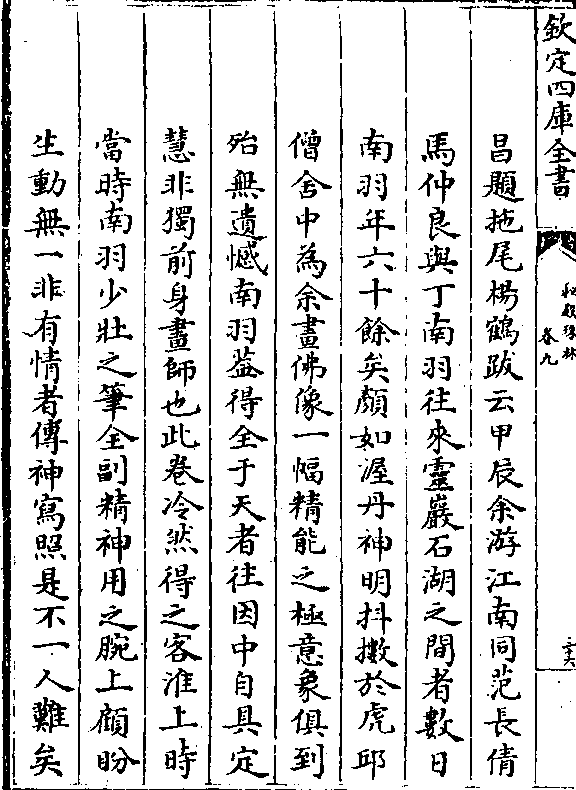 欽定四庫全書
秘殿珠林
卷九
昌題拖尾楊鶴跋云甲辰余游江南同范長倩
馬仲良與丁南羽往來靈巖石湖之間者數日
南羽年六十餘矣顏如渥丹神明抖擻於虎邱
僧舍中為余畫佛像一幅精能之極意象俱到
殆無遺憾南羽益得全于天者往因中自具定
慧非獨前身畫師也此卷冷然得之客淮上時
當時南羽少壯之筆全副精神用之腕上顧盼
生動無一非有情者傳神寫照是不一人難矣